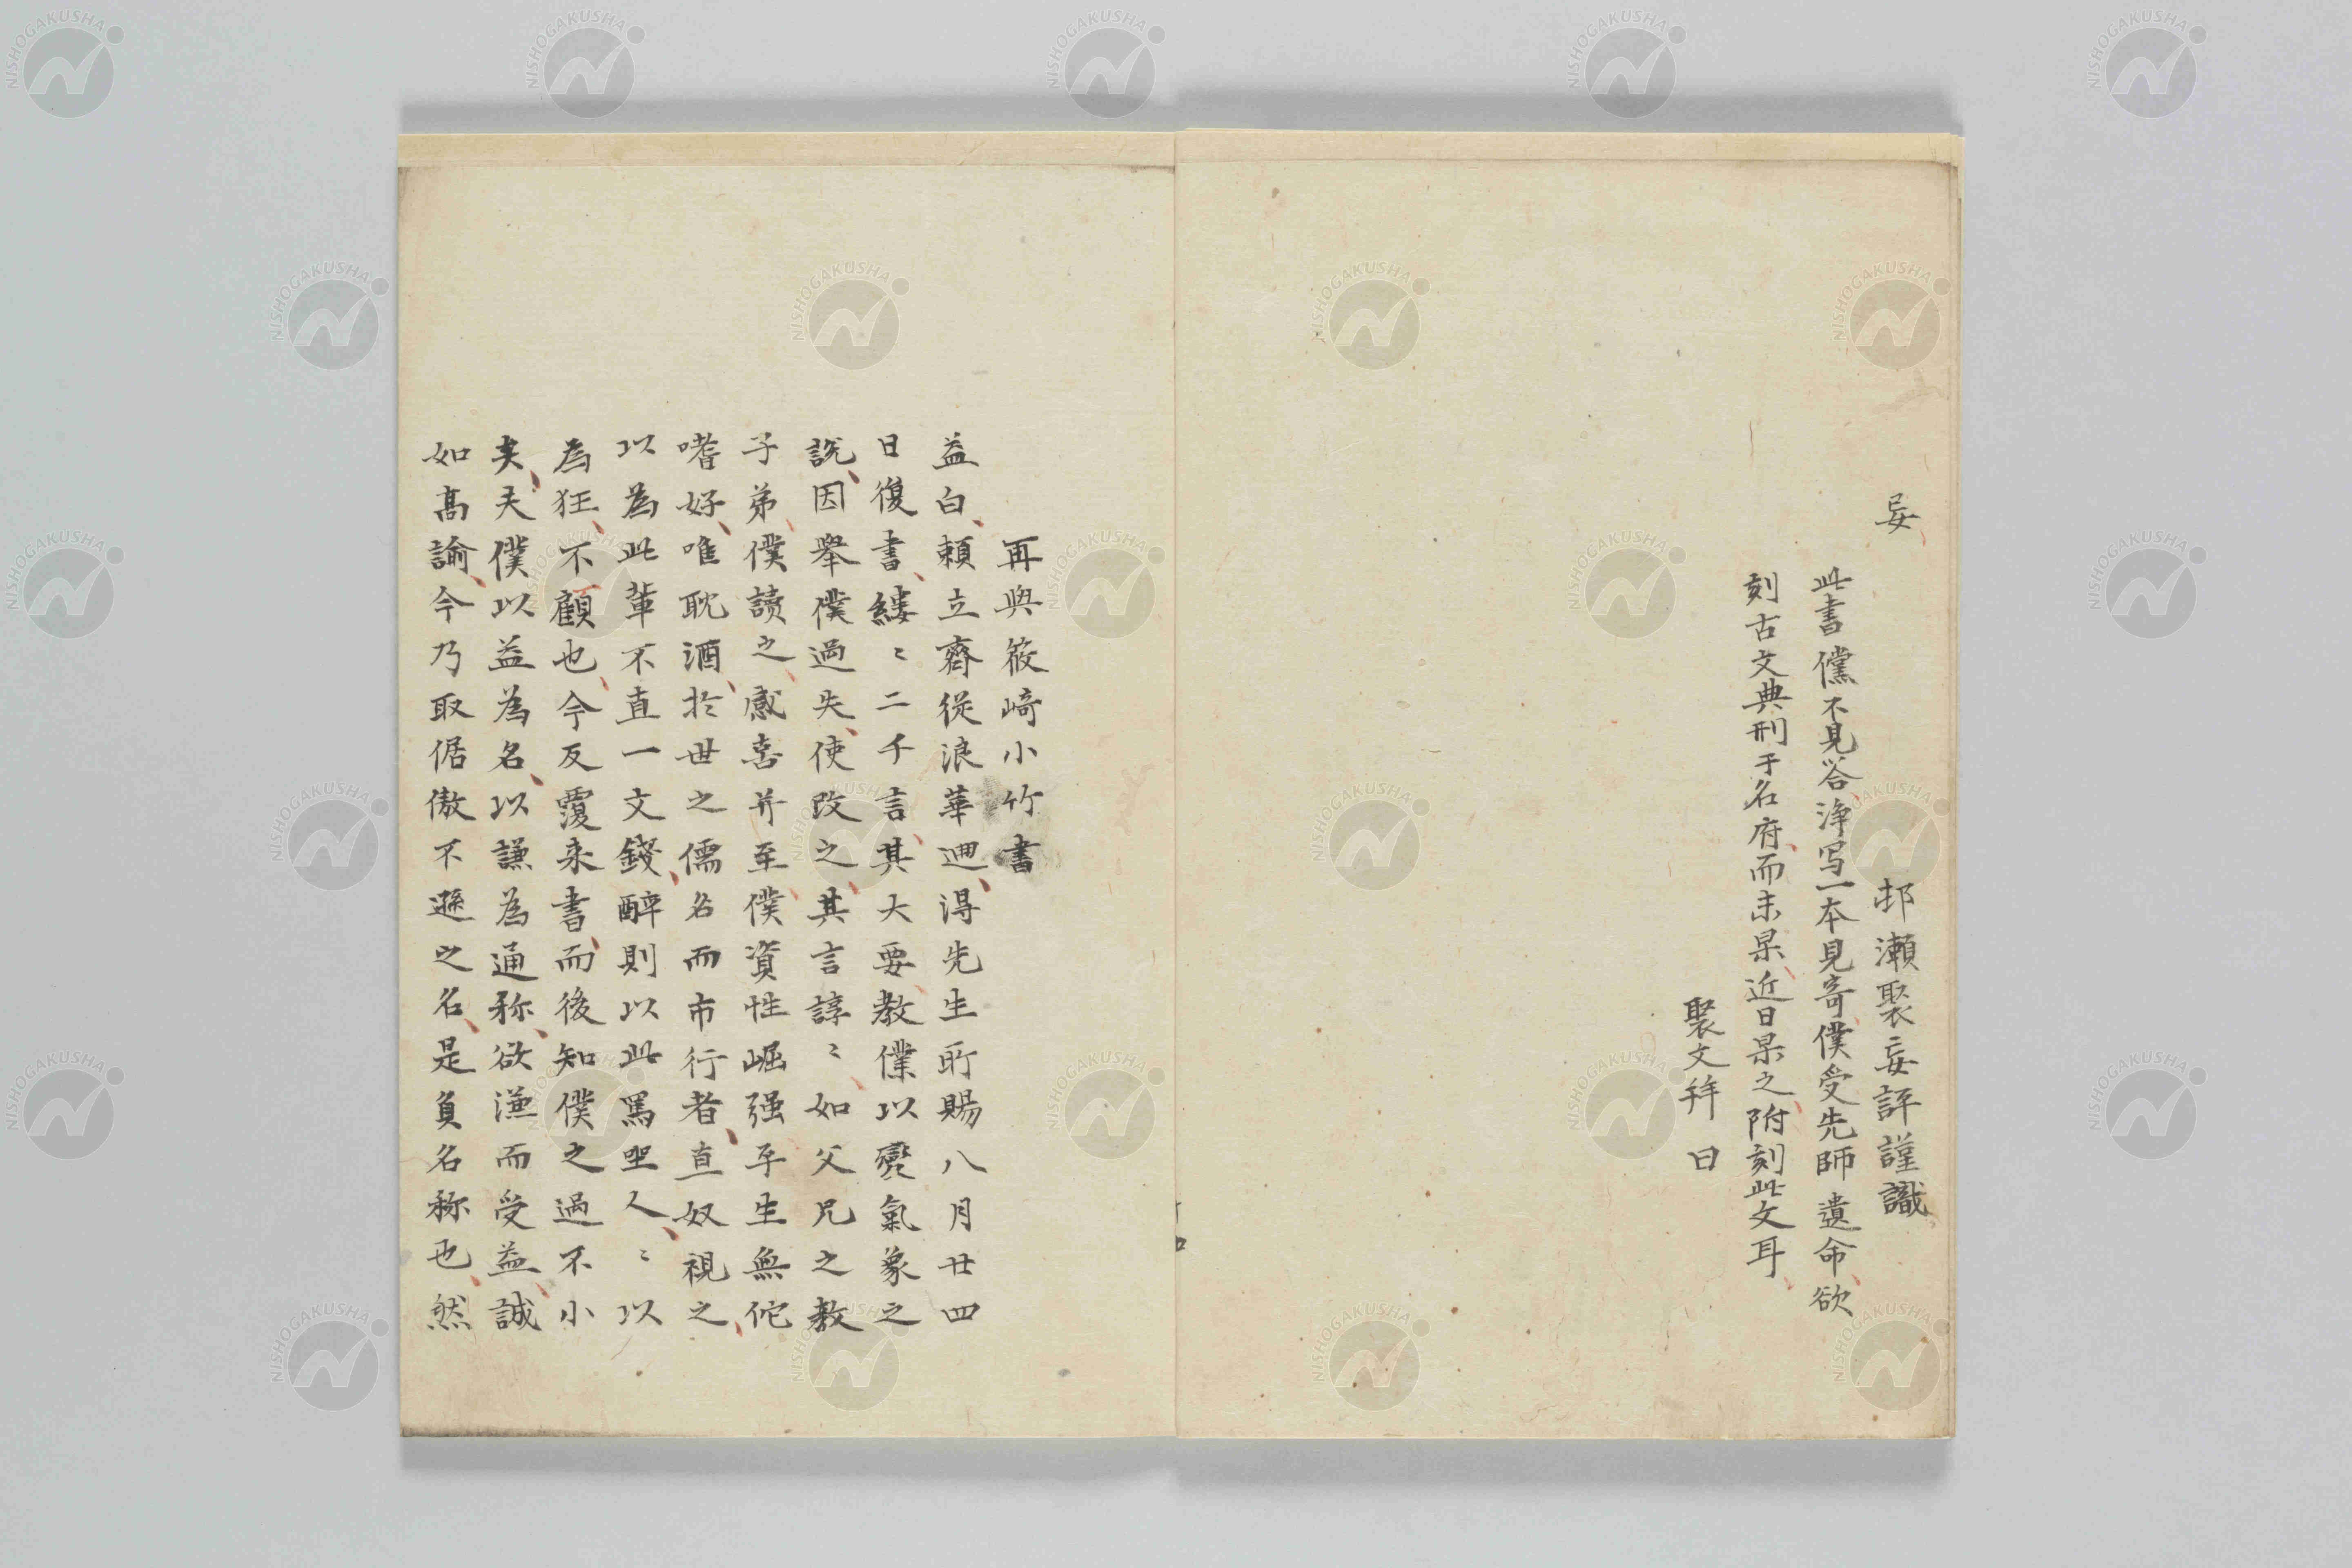 妄
邨瀬褧妄評謹識
此書儻不見咎浄写一本見寄僕受先師遺命欲
刻古文典刑于名府而未果近日果之附刻此文耳
褧文拜曰
再與筱﨑小竹書
益白頼立齋從浪華迴得先生所賜八月廿四
日復書縷〻二千言其大要教僕以變氣象之
説因舉僕過失使改之其言諄〻如父兄之教
子弟僕讀之感喜并至僕資性崛强平生無佗
嗜好唯耽酒於世之儒名而市行者直奴視之
以為此輩不直一文錢醉則以此罵坐人〻以
為狂不顧也今反覆来書而後知僕之過不小
矣夫僕以益為名以謙為通称欲謙而受益誠
如高諭今乃取倨傲不遜之名是負名称也然